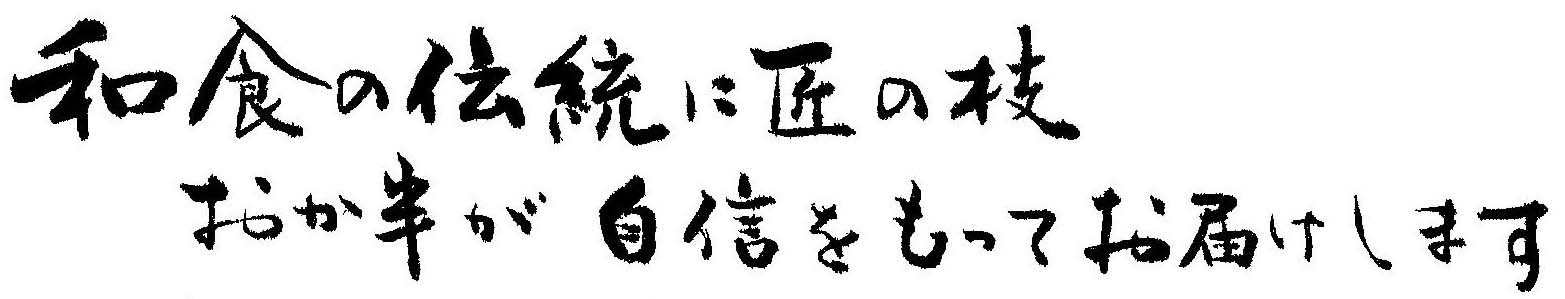 和食の伝統に匠の枝
おか半が自信をもってお届けします